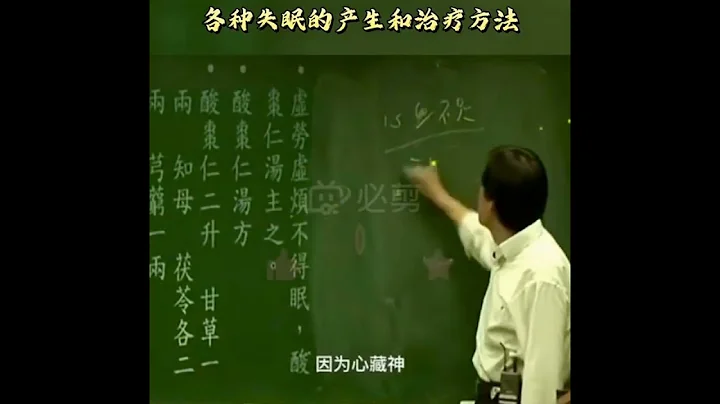 各种失眠的产生和治疗方法
虛勞虛煩不得眠，酸
棗仁湯主之。
酸棗仁湯方
酸棗仁二升　甘草一
兩　知母二
兩　茯苓各二
兩　芎藭一兩
必剪
因为心藏神